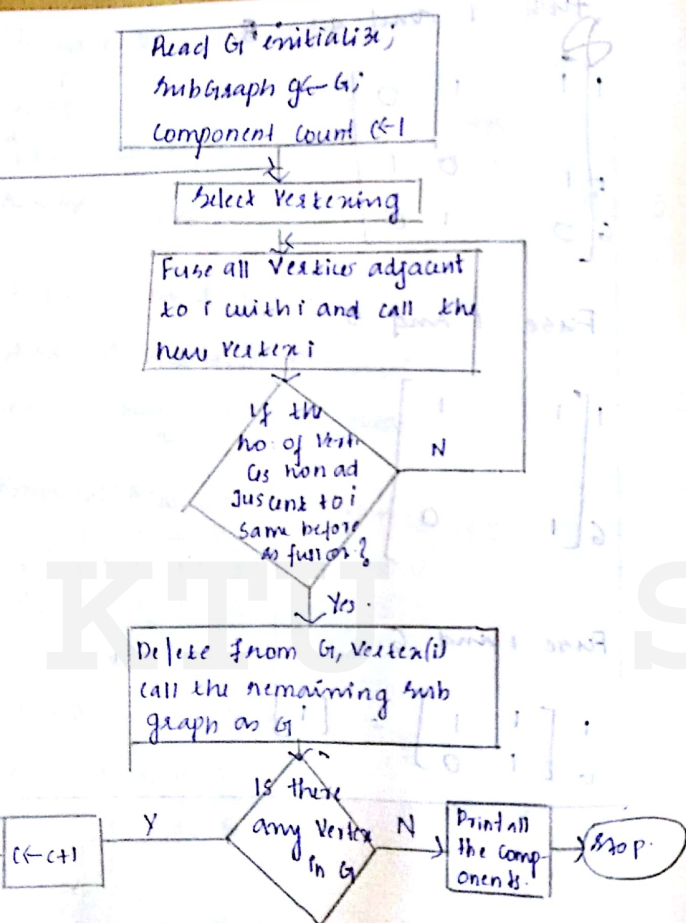 Read G initialize;
SubGraph g← G;
Component count C←1
Select Vertexing
Fuse all Vertices adjacent
to i with i and call the
new Vertex i
If the
no. of Verti
ces non ad
Juscent to i
same before
as fusion?
N
Yes.
Delete from G, Vertex(i)
call the remaining sub
graph as G
Is there
any Vertex
in G
Y
N
C← C+1
Print all
the comp-
onents.
Stop.
KTU S